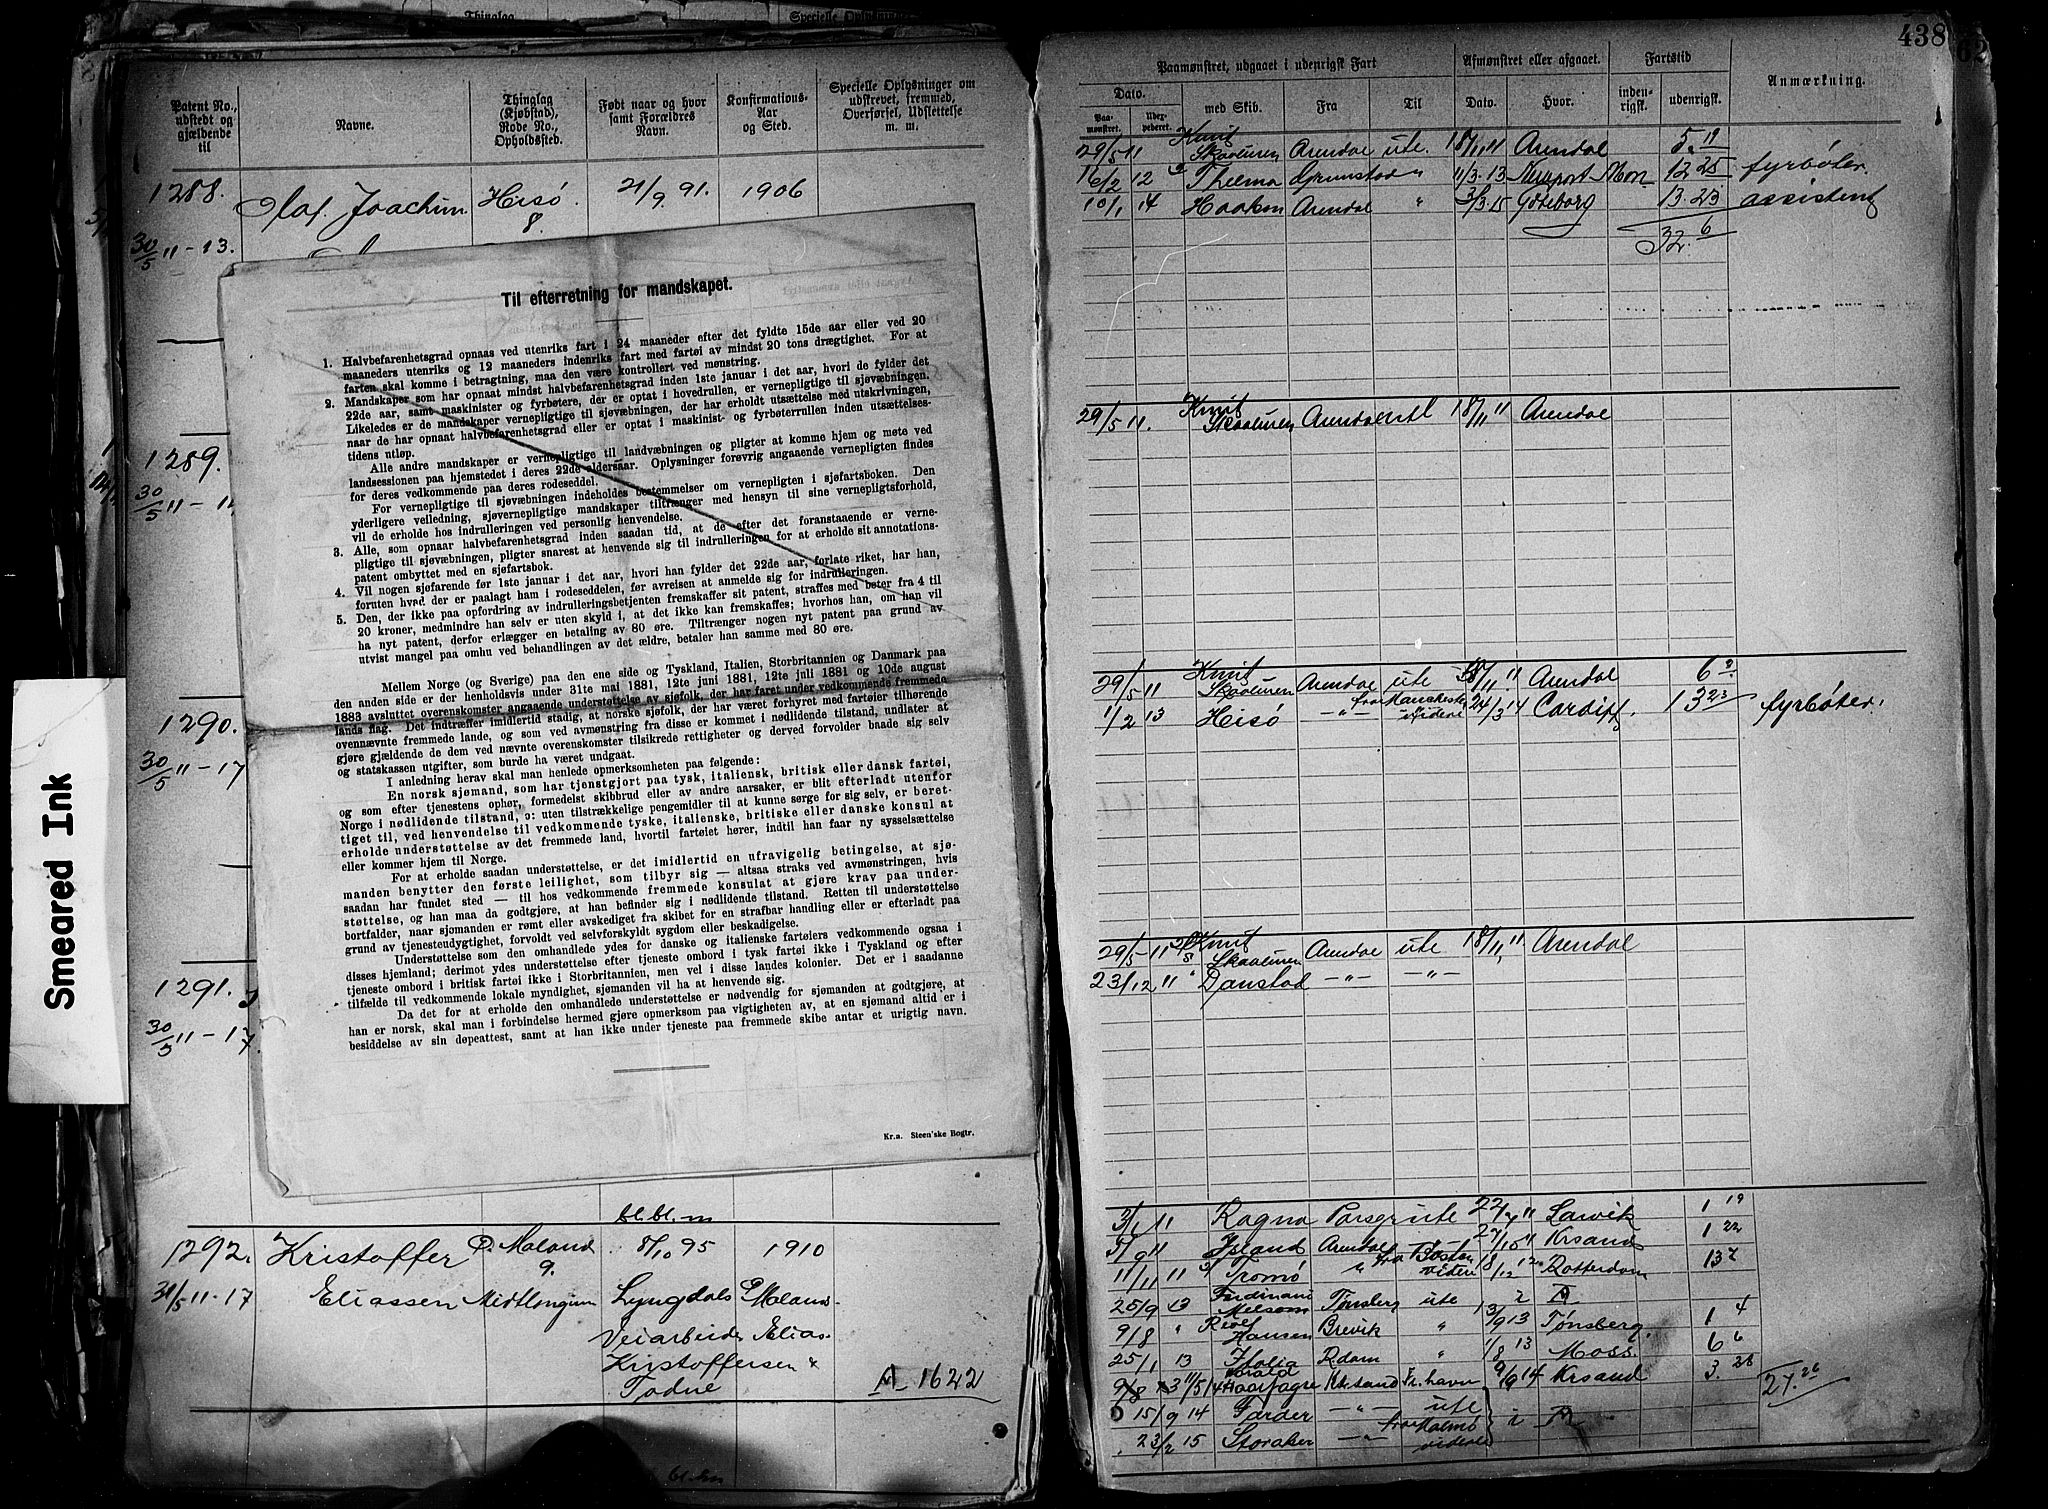 Thinglag
Specielle Oplysninger
438
62
Smeared Ink
Patent No., udstedt og gjældende til
Navne.
Thinglag (Kjøbstad), Rode No., Opholdssted.
Født naar og hvor samt Forældres Navn.
Konfirmations-Aar og Sted.
Specielle Oplysninger om udskrevet, fremmed, Overførsel, Udslettelse m. m.
1288.
Olaf Joachim
Hisö
21/9 91.
1906
8.
30/5 11-13.
1289.
30/5 11-1
1290.
30/5 11-17
1291.
30/5 11-17.
Til efterretning for mandskapet.
1. Halvbefarenhetsgrad opnaas ved utenriks fart i 24 maaneder efter det fyldte 15de aar eller ved 20
maaneders utenriks og 12 maaneders indenriks fart med fartøi av mindst 20 tons drægtighet. For at
farten skal komme i betragtning, maa den være kontrollert ved mønstring.
2. Mandskaper som har opnaat mindst halvbefarenhetsgrad inden 1ste januar i det aar, hvori de fylder det
22de aar, samt maskinister og fyrbøtere, der er optat i hovedrullen, er vernepligtige til sjøvæbningen.
Likeledes er de mandskaper vernepligtige til sjøvæbningen, der har erholdt utsættelse med utskrivningen,
naar de har opnaat halvbefarenhetsgrad eller er optat i maskinist- og fyrbøterrullen inden utsættelses-
tidens utløp.
Alle andre mandskaper er vernepligtige til landvæbningen og pligter at komme hjem og møte ved
landsessionen paa hjemstedet i deres 22de aldersaar. Oplysninger forøvrig angaaende vernepligten findes
for deres vedkommende paa deres rodeseddel.
For vernepligtige til sjøvæbningen indeholdes bestemmelser om vernepligten i sjøfartsboken. Den
yderligere veiledning, sjøvernepligtige mandskaper tiltrænger med hensyn til sine vernepligtsforhold,
vil de erholde hos indrulleringen ved personlig henvendelse.
3. Alle, som opnaar halvbefarenhetsgrad inden saadan tid, at de efter det foranstaaende er verne-
pligtige til sjøvæbningen, pligter snarest at henvende sig til indrulleringen for at erholde sit annotations-
patent ombyttet med en sjøfartsbok.
4. Vil nogen sjøfarende før 1ste januar i det aar, hvori han fylder det 22de aar, forlate riket, har han,
foruten hvad der er paalagt ham i rodeseddelen, før avreisen at anmelde sig for indrulleringen.
5. Den, der ikke paa opfordring av indrulleringsbetjenten fremskaffer sit patent, straffes med bøter fra 4 til
20 kroner, medmindre han selv er uten skyld i, at det ikke kan fremskaffes; hvorhos han, om han vil
ha nyt patent, derfor erlægger en betaling av 80 øre. Tiltrænger nogen nyt patent paa grund av
utvist mangel paa omhu ved behandlingen av det ældre, betaler han samme med 80 øre.
Mellem Norge (og Sverige) paa den ene side og Tyskland, Italien, Storbritannien og Danmark paa
den anden side er der henholdsvis under 31te mai 1881, 12te juni 1881, 12te juli 1881 og 10de august
1883 avsluttet overenskomster angaaende understøttelse av sjøfolk, der har faret under vedkommende fremmede
lands flag. Det indtræffer imidlertid stadig, at norske sjøfolk, der har været forhyret med fartøier tilhørende
ovennævnte fremmede lande, og som ved avmønstring fra disse er kommet i nødlidende tilstand, undlater at
gjøre gjældende de dem ved nævnte overenskomster tilsikrede rettigheter og derved forvolder baade sig selv
og statskassen utgifter, som burde ha været undgaat.
I anledning herav skal man henlede opmerksomheten paa følgende:
En norsk sjømand, som har tjenstgjort paa tysk, italiensk, britisk eller dansk fartøi,
og som efter tjenestens ophør, formedelst skibbrud eller av andre aarsaker, er blit efterladt utenfor
Norge i nødlidende tilstand, ɔ: uten tilstrækkelige pengemidler til at kunne sørge for sig selv, er beret-
tiget til, ved henvendelse til vedkommende tyske, italienske, britiske eller danske konsul at
erholde understøttelse av det fremmede land, hvortil fartøiet hører, indtil han faar ny sysselsættelse
eller kommer hjem til Norge.
For at erholde saadan understøttelse, er det imidlertid en ufravigelig betingelse, at sjø-
manden benytter den første leilighet, som tilbyr sig — altsaa straks ved avmønstringen, hvis
saadan har fundet sted — til hos vedkommende fremmede konsulat at gjøre krav paa under-
støttelse, og han maa da godtgjøre, at han befinder sig i nødlidende tilstand. Retten til understøttelse
bortfalder, naar sjømanden er rømt eller avskediget fra skibet for en strafbar handling eller er efterladt paa
grund av tjenesteudygtighet, forvoldt ved selvforskyldt sygdom eller beskadigelse.
Understøttelse som den omhandlede ydes for danske og italienske fartøiers vedkommende ogsaa i
disses hjemland; derimot ydes understøttelse efter tjeneste ombord i tysk fartøi ikke i Tyskland og efter
tjeneste ombord i britisk fartøi ikke i Storbritannien, men vel i disse landes kolonier. Det er i saadanne
tilfælde til vedkommende lokale myndighet, sjømanden vil ha at henvende sig.
Da det for at erholde den omhandlede understøttelse er nødvendig for sjømanden at godtgjøre, at
han er norsk, skal man i forbindelse hermed gjøre opmerksom paa vigtigheten av, at en sjømand altid er i
besiddelse av sin døpeattest, samt at han ikke under tjeneste paa fremmede skibe antar et urigtig navn.
Kr.a. Steen'ske Bogtr.
bl.bl.m
1292. Kristoffer Ø. Moland 8/10 95 1910
9.
31/5 11-17 Eliassen Midtlongum Lyngdals Ø Molands
Veiarbeider Elias
Kristoffersen &
Todne
A 1622
bl.bn
Paamønstret, udgaaet i udenrigsk Fart
Afmønstret eller afgaaet.
Fartstid
Anmærkning.
Dato.
Paamønstret.
Udexpederet.
med Skib.
Fra
Til
Dato.
Hvor.
indenrigsk.
udenrigsk.
29/5 11 Knut Skaaluren Arendal ute. 18/11 11 Arendal 5. 19
16/2 12 Thelma Grimstad " 11/3 13 Newport Mon 12 25 fyrbøter.
10/1 14 Haakon Arendal " 3/3 15 Gøteborg 13. 23 assistent
32. 6
29/5 11. Knut Skaaluren Arendal utl 18/11 11 Arendal
29/5 11 Knut Skaaluren Arendal ute 18/11 11 Arendal 6 2
1/2 13 Hisö -"- fra Manchester videre 24/3 14 Cardiff. 13 23 fyrbøter.
29/5 11 Knut Skaaluren Arendal ute 18/11 11 Arendal
23/12 11 Danstad -"- -"-
3/1 11 Ragna Porsgr ute 22/4 11 Larvik 1 19
5/9 11 Island Arendal -"- 27/10 11 Krsand 1 22
11/11 11 Tromö " fra Boston videre 18/12 12 Rotterdam 13 2
25/9 13 Ferdinand Melsom Tønsberg ute
9/8 " Rolf Hansen Brevik " 13/9 13 Tønsberg. 1 4
25/1 13 Italia R.dam " 1/8 13 Moss. 6 6
11/5 14 Harald Haarfagre Khrsand Fr.havn 9/9 14 Krsand 3. 28
27. 26
15/9 14 Færder -"- ute
23/2 15 Storaker -"- fra Malmö videre